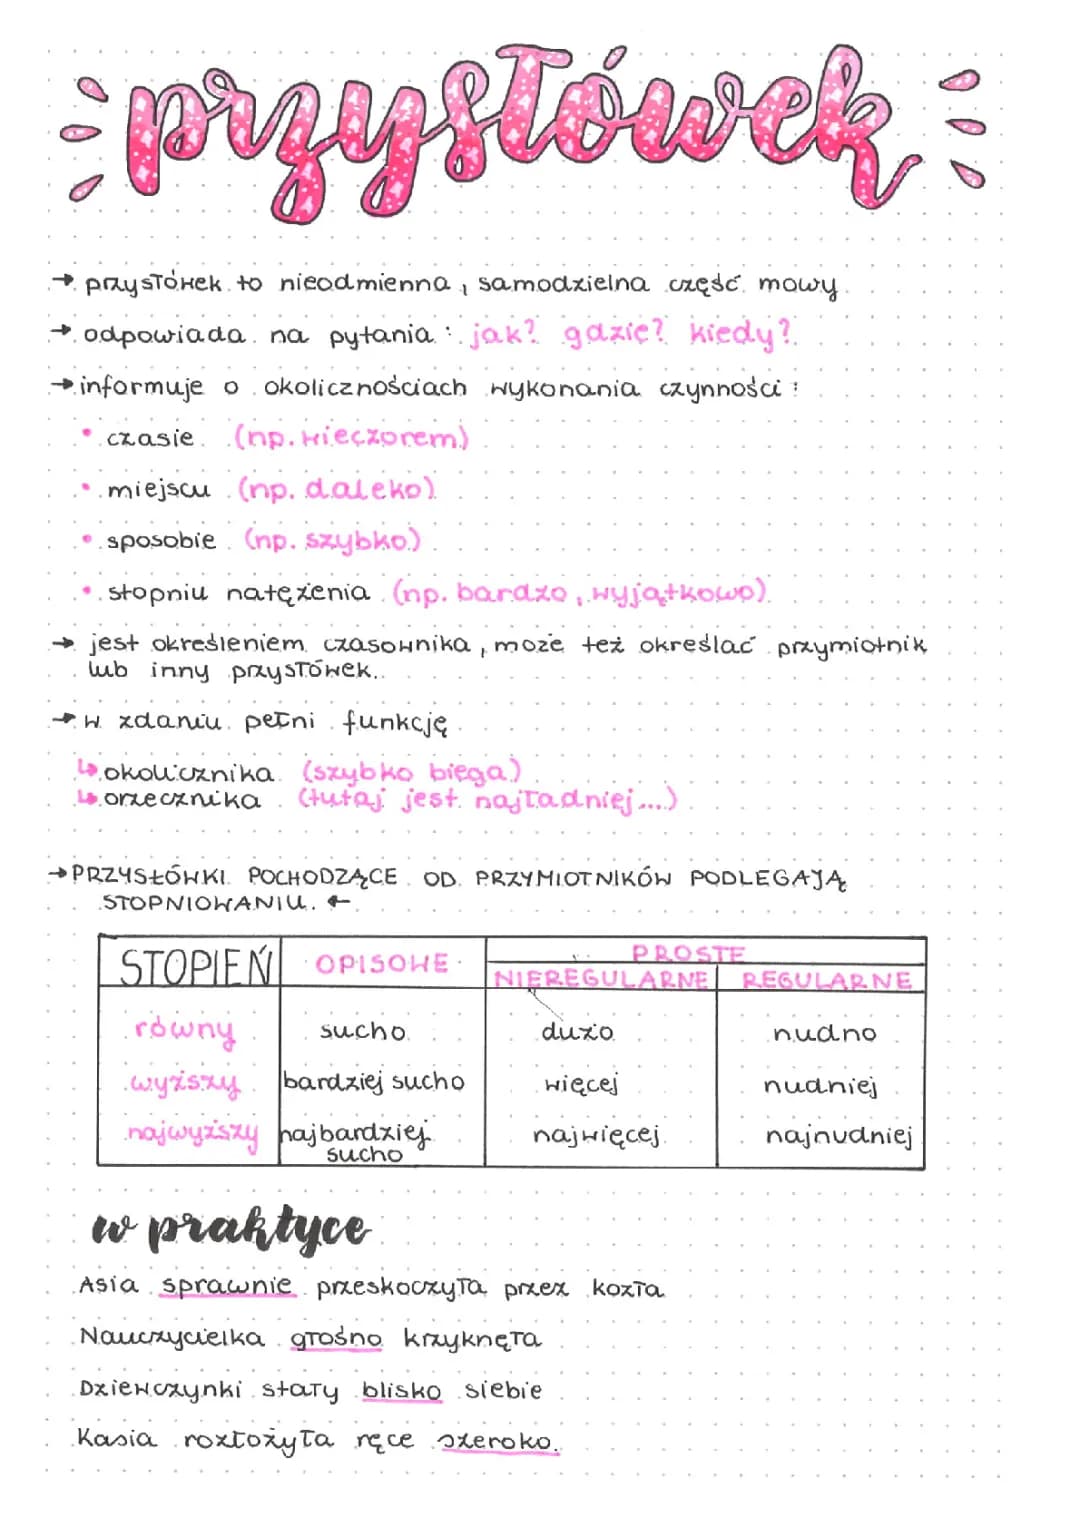 przysłówek
→ przysłówek to nieodmienna, samodzielna część mowy
→ odpowiada na pytania: jak? gdzie? kiedy?
→ informuje o okolicznościach wykonania czynności:
• czasie (np. wieczorem)
• miejscu (np. daleko)
• sposobie (np. szybko)
• stopniu natężenia (np. bardzo, wyjątkowo)
→ jest określeniem czasownika, może też określać przymiotnik
lub inny przysłówek.
→ w zdaniu pełni funkcję
↳ okolicznika (szybko biega)
↳ orzecznika (tutaj jest najładniej...)
→ PRZYSŁÓWKI POCHODZĄCE OD PRZYMIOTNIKÓW PODLEGAJĄ
STOPNIOWANIU. ←
STOPIEŃ OPISOWE PROSTE
NIEREGULARNE REGULARNE
równy sucho dużo nudno
wyższy bardziej sucho więcej nudniej
najwyższy najbardziej sucho najwięcej najnudniej
w praktyce
Asia sprawnie przeskoczyła przez kozła
Nauczycielka głośno krzyknęła
Dziewczynki stały blisko siebie
Kasia rozłożyła ręce szeroko.